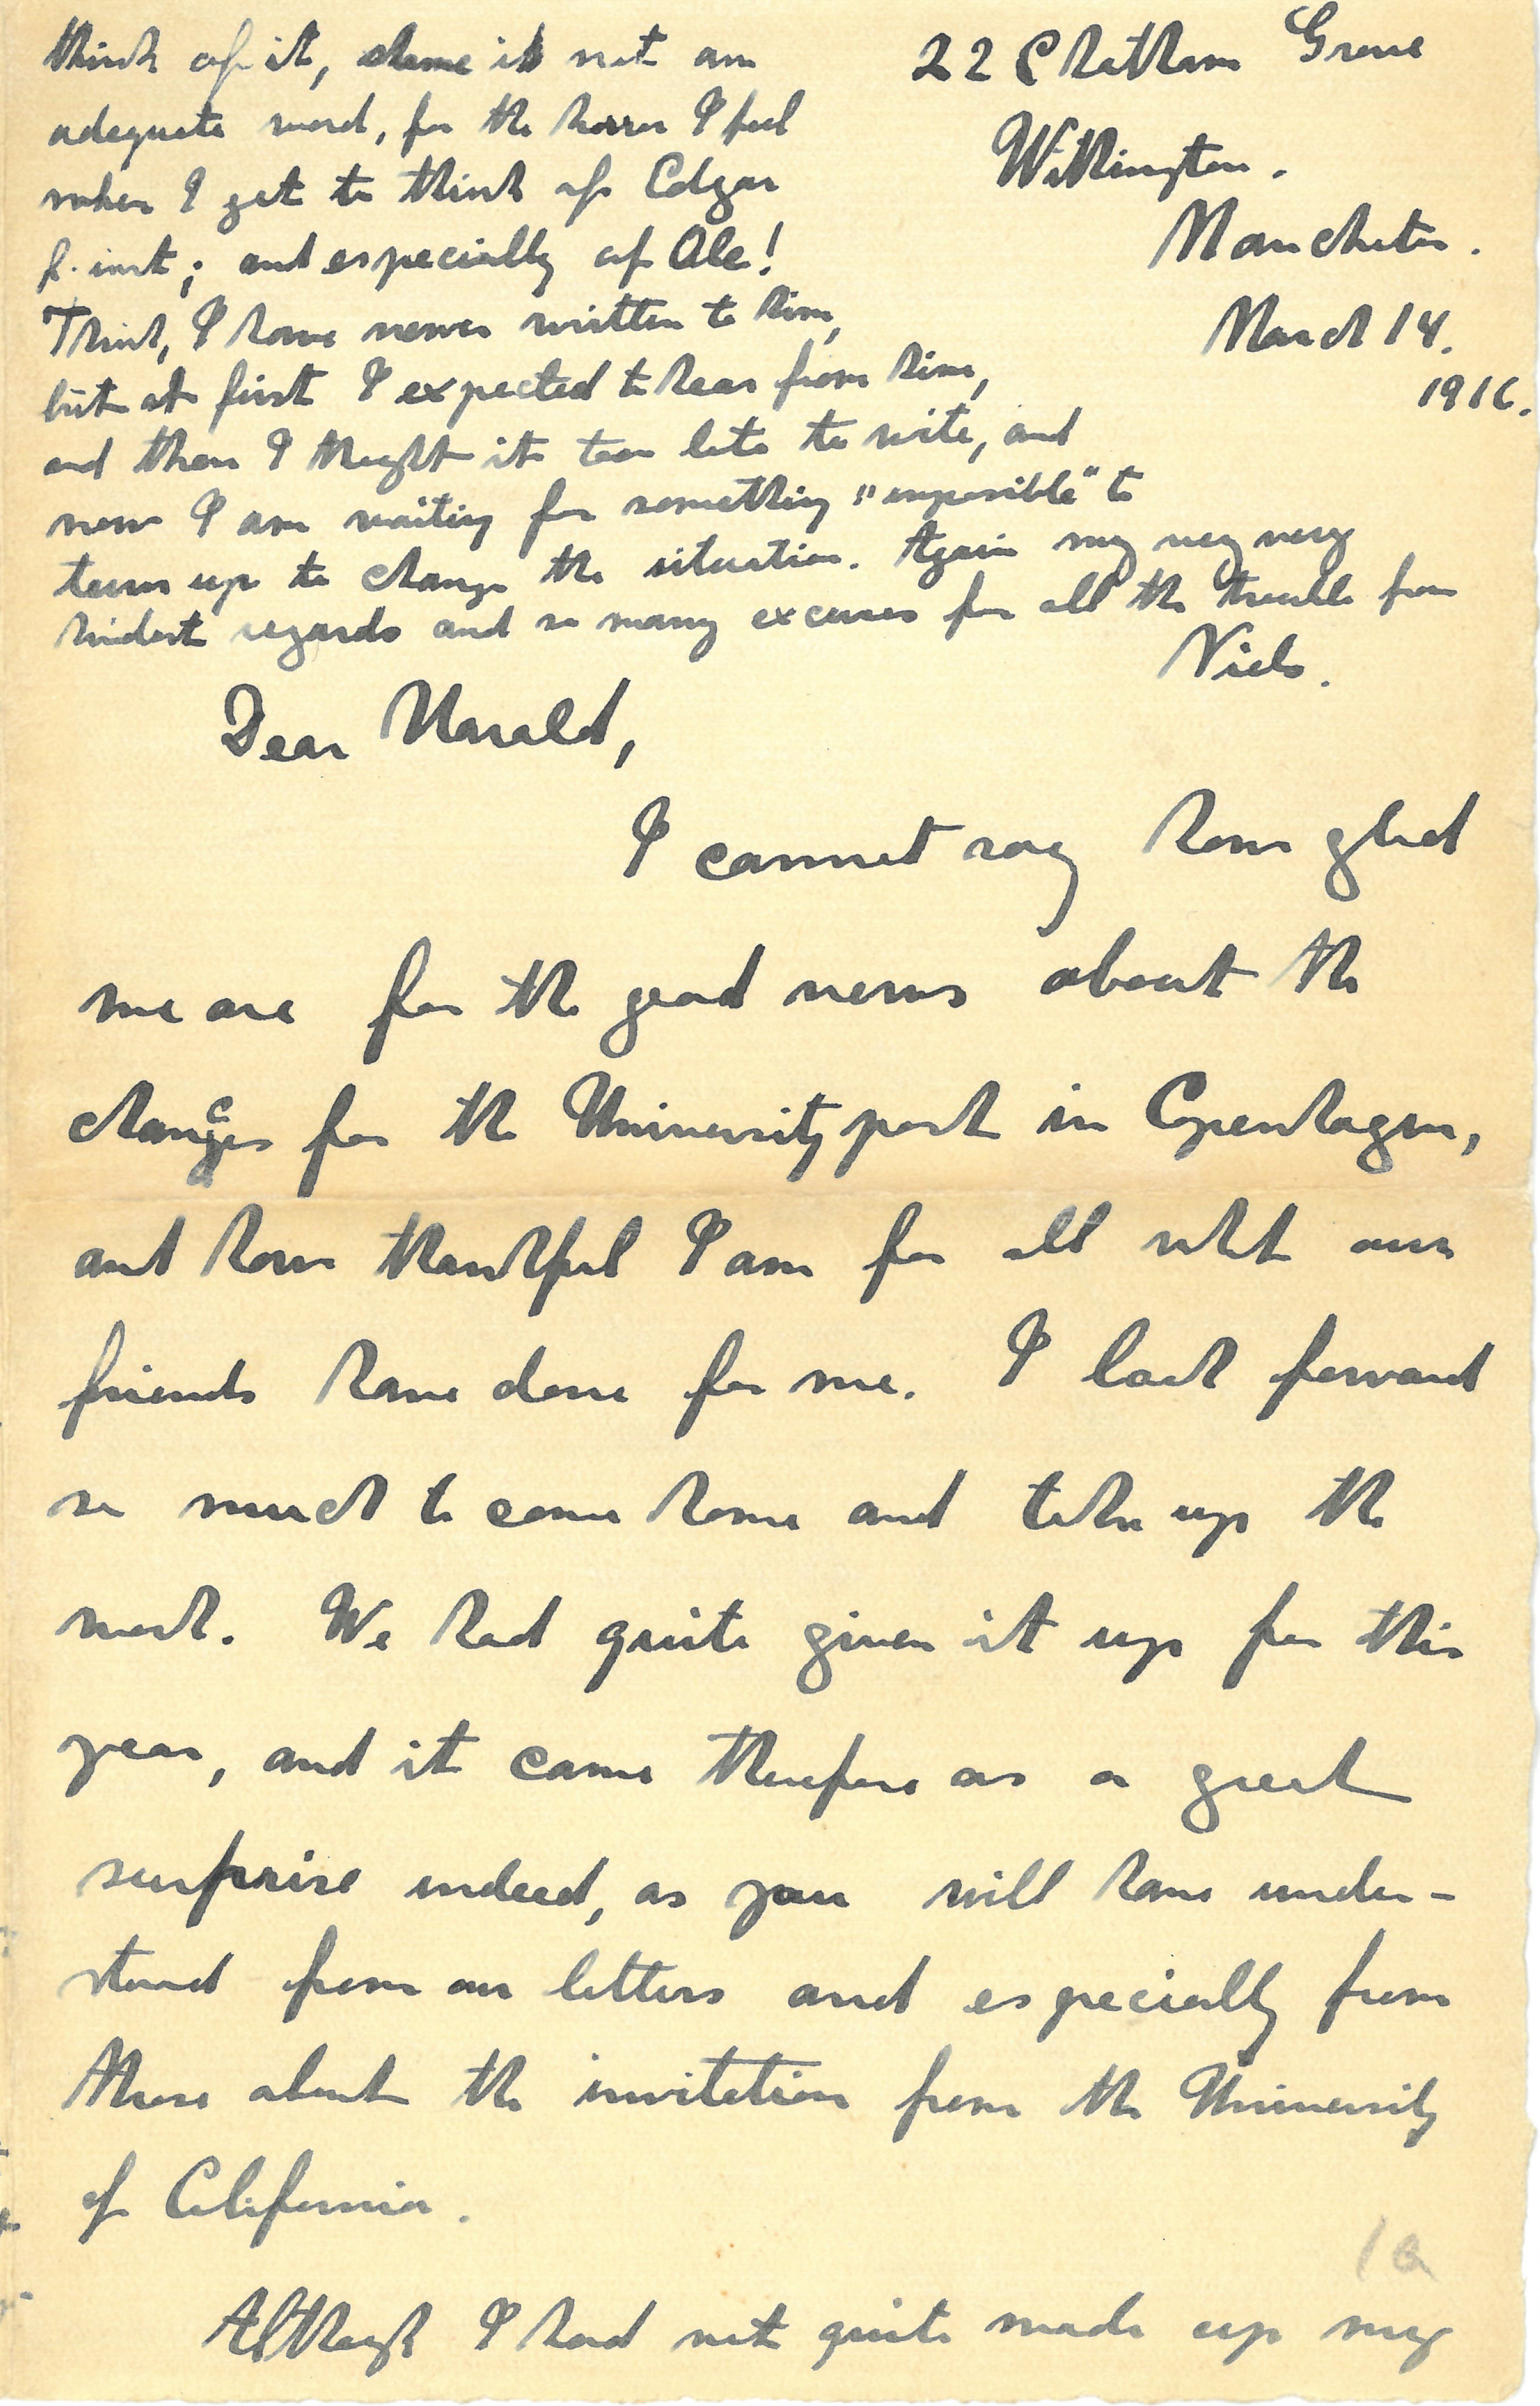 22 Chatham Grove
Withington.
Manchester.
March 14.
1916.
think of it, shame is not an
adequate word, for the horror I feel
when I get to think of Edgar
f. inst; and especially of Ole!
Think, I have never written to him,
but at first I expected to hear from him,
and then I thought it too late to write, and
now I am waiting for something "impossible" to
turn up to change the situation. Again my very very
kindest regards and so many excuses for all the trouble from
Niels.
Dear Harald,
I cannot say how glad
we are for the good news about the
chances for the University post in Copenhagen,
and how thankful I am for all what our
friends have done for me. I look forward
so much to come home and take up the
work. We had quite given it up for this
year, and it came therefore as a great
surprise indeed, as you will have under-
stood from our letters and especially from
those about the invitation from the University
of California.
1a
Although I had not quite made up my